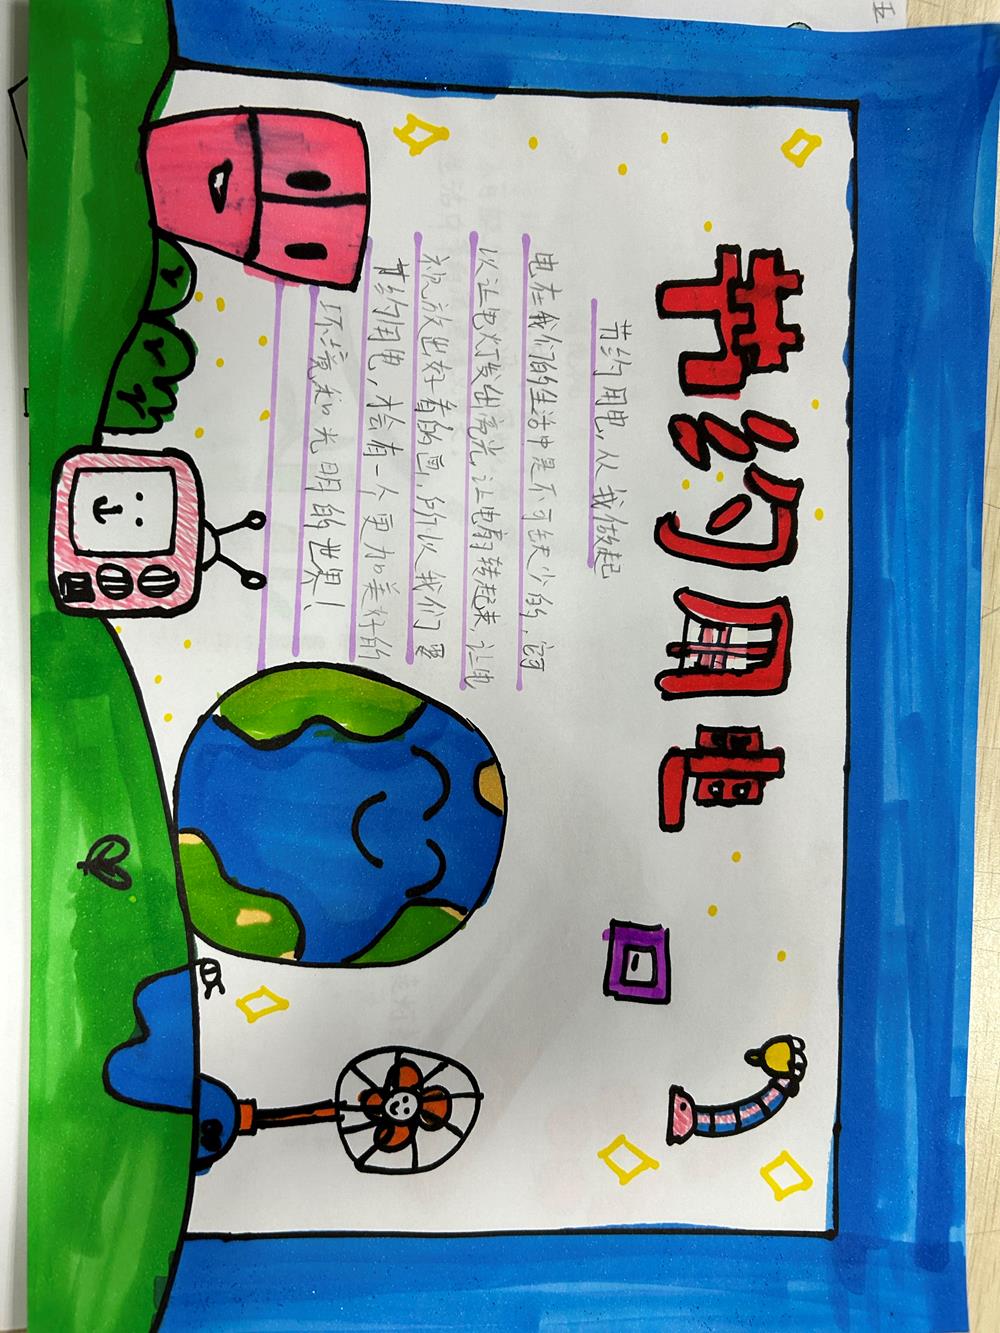 节约用电
节约用电，从我做起
电在我们的生活中是不可缺少的，它可
以让电灯发出亮光，让电扇转起来，让电
视放出好看的画，所以我们要
节约用电，才会有一个更加美好的
环境和光明的世界！